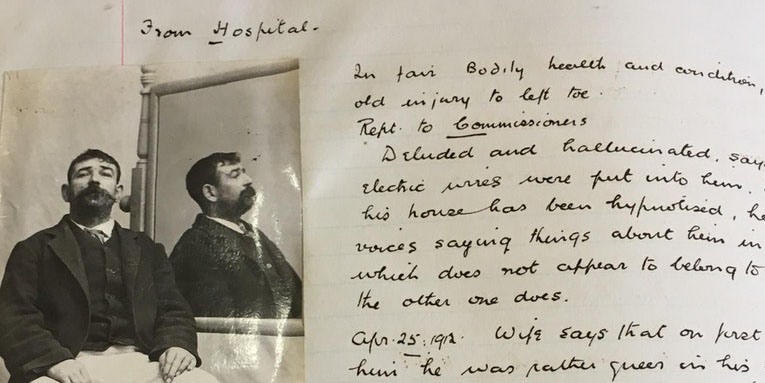 From Hospital.
In fair Bodily health and condition,
old injury to left toe.
Rept. to Commissioners
Deluded and hallucinated, says
electric wires were put into him,
his house has been hypnotised, he
voices saying things about him in
which does not appear to belong to
the other one does.
Apr. 25. 1912. Wife says that on first
him he was rather queer in his